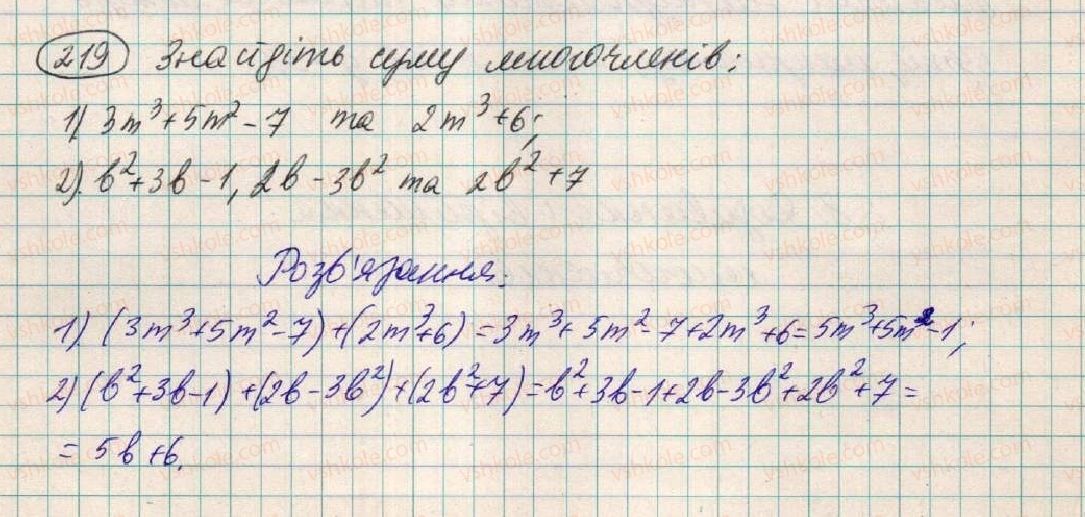 219 Знайдіть суму многочленів:
1) 3m³+5m²-7 та 2m³+6;
2). b²+3b-1, 2b-3b² та 2b²+7
Розв'язання:
1) (3m³+5m²-7)+(2m³+6)=3m³+5m²-7+2m³+6=5m³+5m²-1;
2) (b²+3b-1)+(2b-3b²)+(2b²+7)=b²+3b-1+2b-3b²+2b²+7=
= 5b+6.